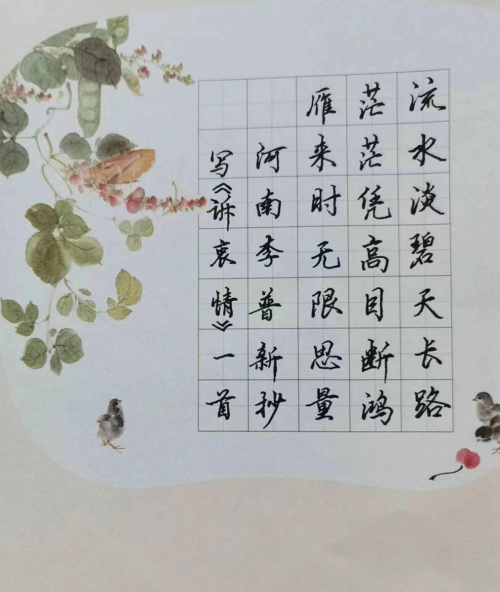 流水淡碧天长路
茫茫凭高目断鸿
雁来时无限思量
河南李普新抄
写《诉衷情》一首